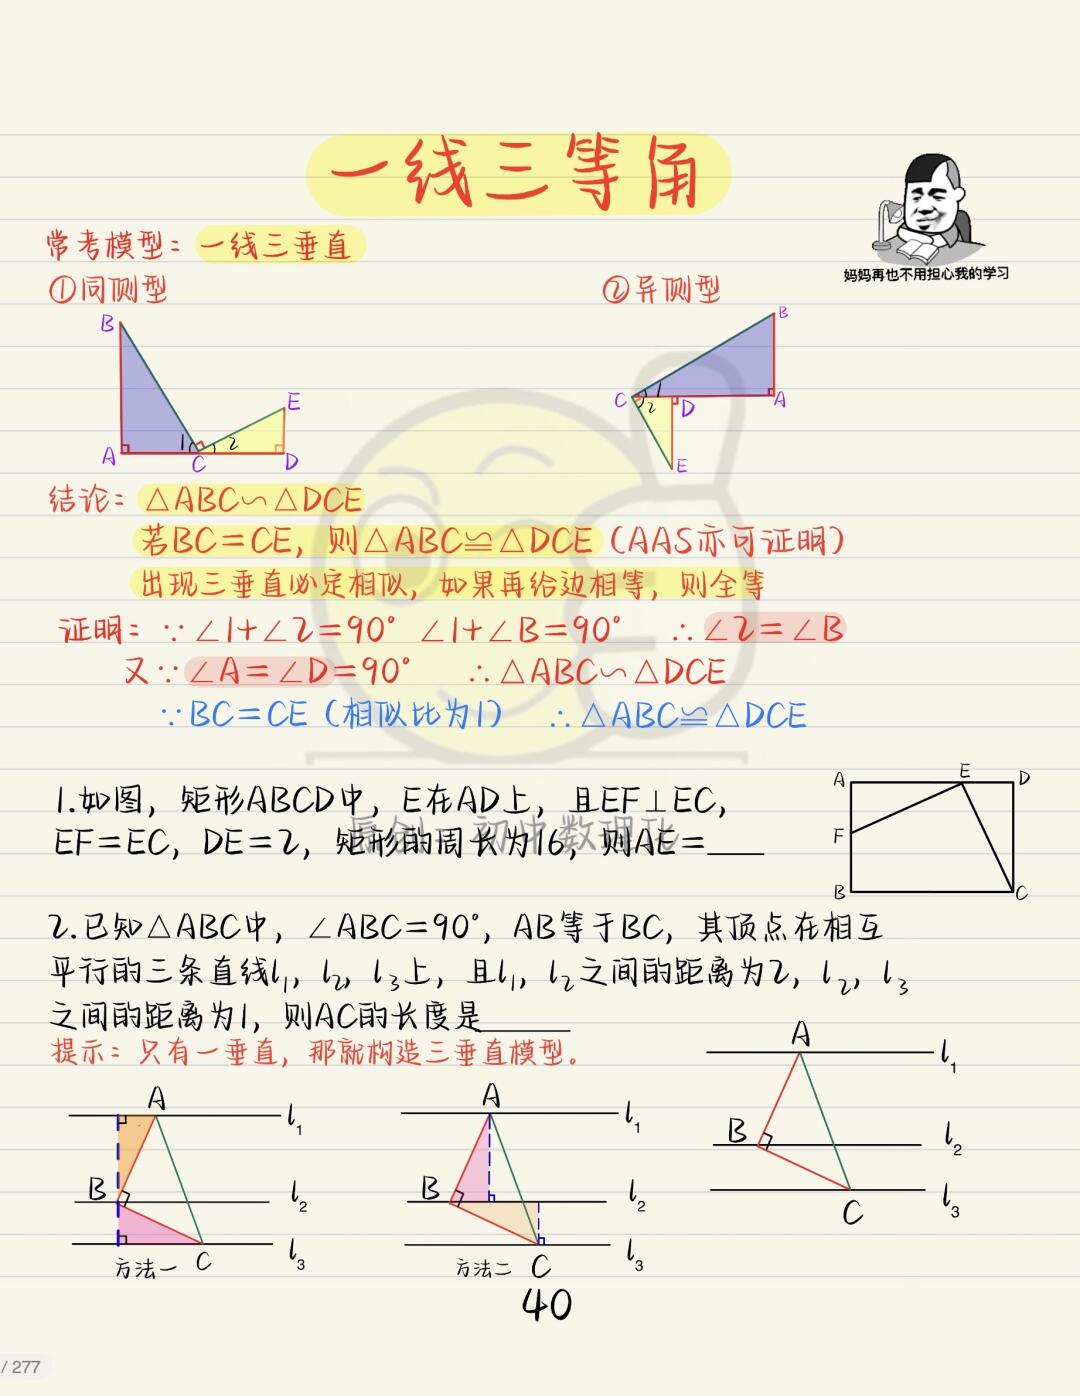 一线三等角
妈妈再也不用担心我的学习
常考模型：一线三垂直
①同侧型
②异侧型
B
E
1
2
A
C
D
B
C
1
2
D
A
E
结论：△ABC∽△DCE
若BC=CE，则△ABC≌△DCE（AAS亦可证明）
出现三垂直必定相似，如果再给边相等，则全等
证明：∵∠1+∠2=90° ∠1+∠B=90° ∴∠2=∠B
又∵∠A=∠D=90° ∴△ABC∽△DCE
∵BC=CE（相似比为1） ∴△ABC≌△DCE
1.如图，矩形ABCD中，E在AD上，且EF⊥EC，
EF=EC，DE=2，矩形的周长为16，则AE=___
A
E
D
F
B
C
2.已知△ABC中，∠ABC=90°，AB等于BC，其顶点在相互
平行的三条直线l₁，l₂，l₃上，且l₁，l₂之间的距离为2，l₂，l₃
之间的距离为1，则AC的长度是____
提示：只有一垂直，那就构造三垂直模型。
A
l₁
B
l₂
C
l₃
A
l₁
B
l₂
C
l₃
方法一
A
l₁
B
l₂
C
l₃
方法二
40
/ 277